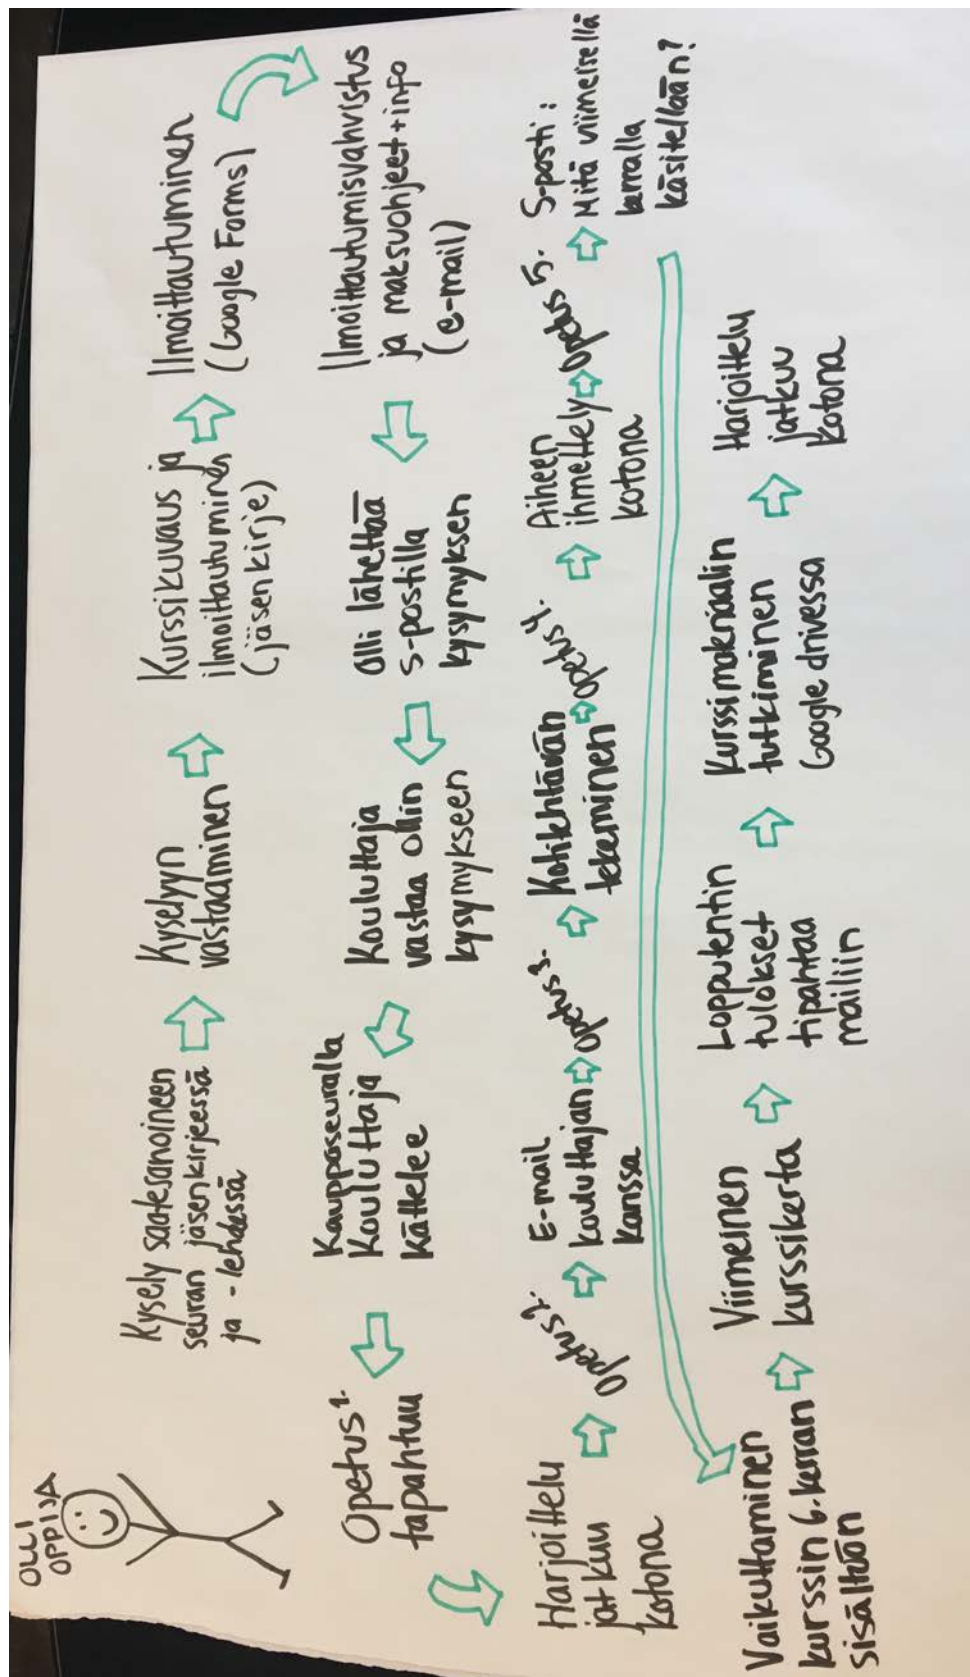 OLLI
OPPIJA
Kysely saatesanoineen
seuran jäsenkirjeessä
ja -lehdessä
Kyselyyn
vastaaminen
Kurssikuvaus ja
ilmoittautuminen
(jäsenkirje)
Ilmoittautuminen
(Google Forms)
Ilmoittautumisvahvistus
ja maksuohjeet+info
(e-mail)
Olli lähettää
s-postilla
kysymyksen
Kouluttaja
vastaa Ollin
kysymykseen
Kaupposeuralla
Kouluttaja
kättelee
Opetus 1.
tapahtuu
Harjoittelu
jatkuu
kotona
Opetus 2.
E-mail
kouluttajan
kanssa
Opetus 3.
Kotitehtävän
tekeminen
Opetus 4.
Aiheen
ihmettely
kotona
Opetus 5.
S-posti:
Mitä viimeisellä
kerralla
käsitellään?
Vaikuttaminen
kurssin 6. kerran
sisältöön
Viimeinen
kurssikerta
Lopputentin
tulokset
tipahtaa
mailiin
Kurssimateriaalin
tutkiminen
Google drivessa
Harjoittelu
jatkuu
kotona